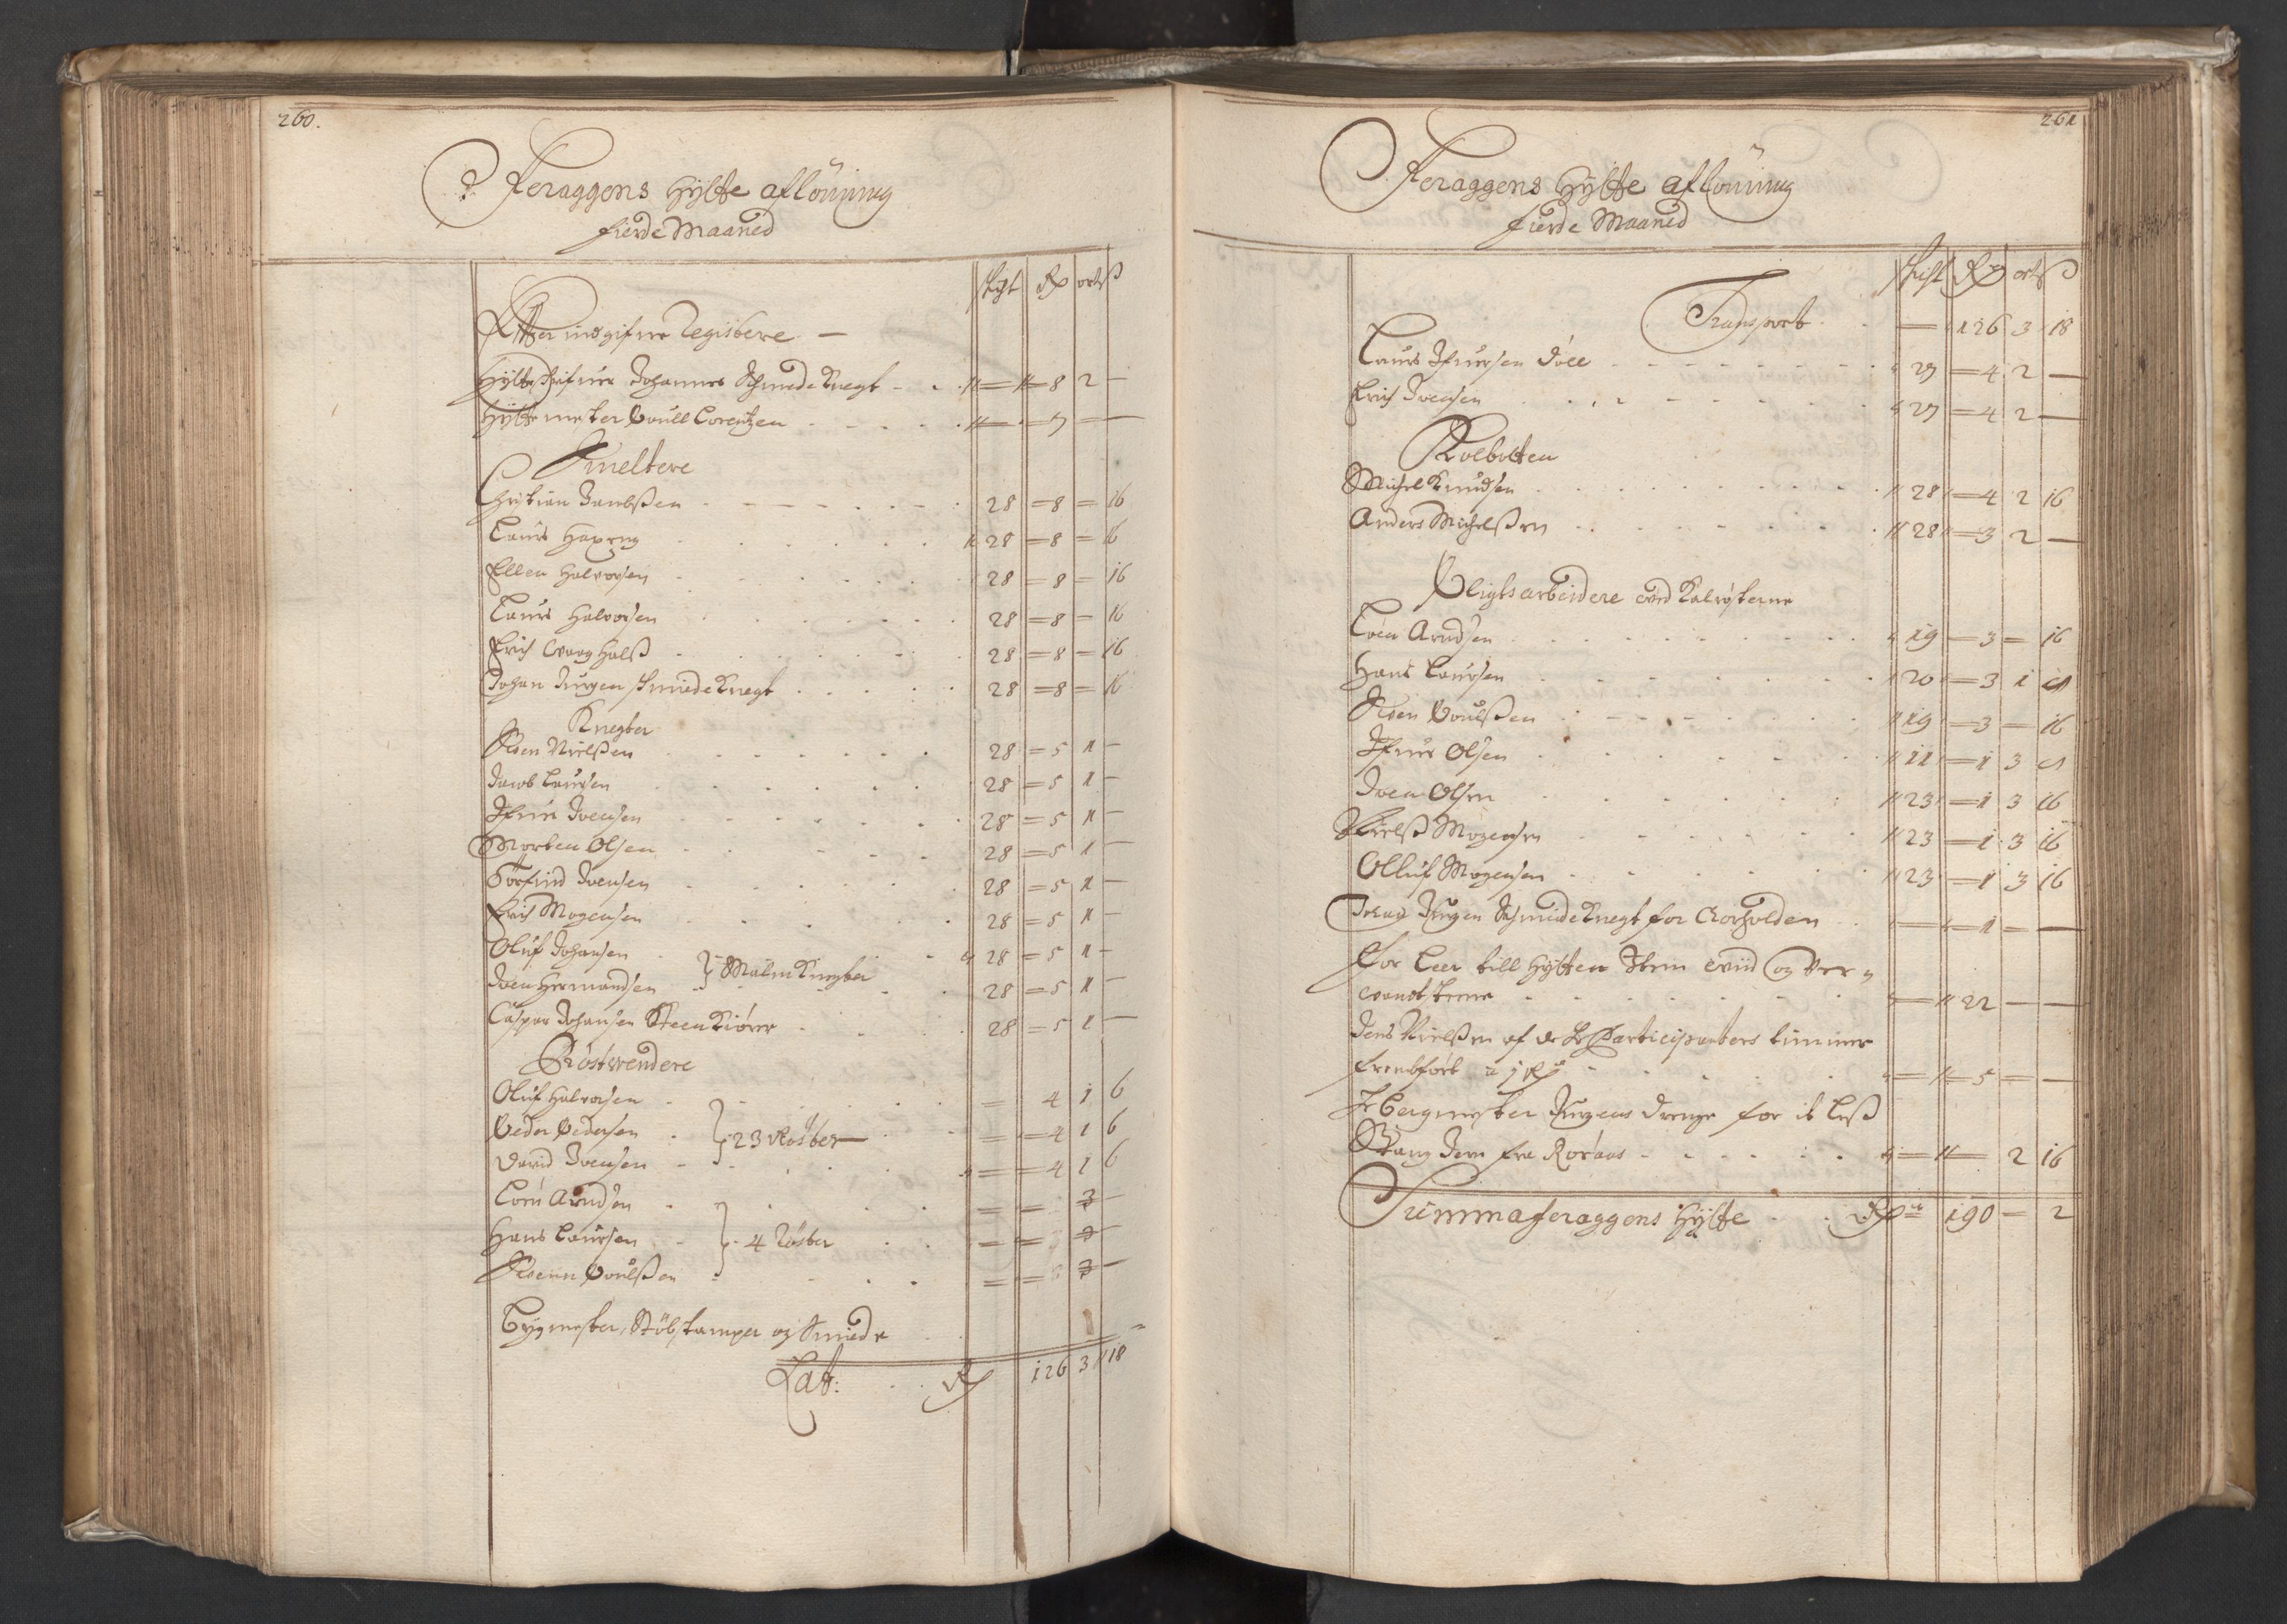 260.
Feraggens Hytte aflöning
fierde Maaned
skigt Rd ort ß
Efter indgifne Registere —
Hytteskrifver Johannes Schmedeknegt - - 8 2 —
Hyttemester Poull Lorentzen - - 7 — —
Smeltere
Christian Jacobßen 28 = 8 = 16
Laurs Haxeng 28 = 8 = 16
Ellen Halvorsen 28 = 8 = 16
Laurs Halvorsen 28 = 8 = 16
Erich Craag Halß 28 = 8 = 16
Johan Jurgen Smiedeknegt 28 = 8 = 16
Knegter
Sven Nielßen 28 = 5 1 —
Jacob Laursen 28 = 5 1 —
Ifuer Ivensen 28 = 5 1 —
Morten Olsen 28 = 5 1 —
Torfind Ivensen 28 = 5 1 —
Erich Mogensen 28 = 5 1 —
Oluf Johansen 28 = 5 1 —
Iven Hermandsen } Malmknegter 28 = 5 1 —
Caspar Johansen Steenkiörer 28 = 5 1 —
Röstvendere
Oluf Halvorsen = 4 1 6
Peder Pedersen } 23 Röster = 4 1 6
David Ivensen = 4 1 6
Loen Arndsen = = 3 —
Hans Laursen } 4 Röster = = 3 —
Svenn Poulßen = = 3 —
Bygmester, Stöbstamper og Smied
Latt: Rd 126 3 18
261
Feraggens Hytte aflöning
fierde Maaned
skift Rd ort ß
Transport — 126 3 18
Laurs Ifuersen Döll 27 = 4 2 —
Erich Ivensen 27 = 4 2 —
Kolbotten
Michel Knudsen 28 = 4 2 16
Anders Michelßen 28 = 3 2 —
Pligtsarbeidere ved Kalrösterne
Loen Arndsen 19 = 3 — 16
Hans Laursen 20 = 3 1 8
Sven Poulßen 19 = 3 — 16
Ifuer Olsen 11 = 1 3 8
Iven Olsen 23 = 1 3 16
Nielß Mogensen 23 = 1 3 16
Olluf Mogensen 23 = 1 3 16
Johan Jurgen Schmiedeknegt for Korholden — 1 — —
For Leer till Hytten Item Viid og Ver-
vandskerne — 22 — —
Jens Nielßen af de Hr Participanters timmer
frembfört a 1 Rd — 5 — —
Hr Bergmester Jurgens Drenge for it Leß
Stang Jern fra Röraas — 2 16
Summa feraggens Hytte Rd 190 — 2